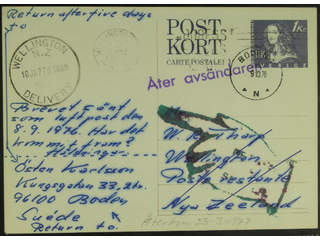 Return after five days
to
WELLINGTON
N.Z
DELIVERY
POST
KORT
CARTE POSTALE
1 Kr
SVERIGE
BODEN
N
Åter avsändaren
Brevet sänt
som luftpost den
8.9.1976. Har det
kommit fram?
Östen Karlsson
Kungsgatan 33, 2tr.
96100 Boden
Suède
Return to.
W.
Wellington
Poste restante
Nya Zeeland